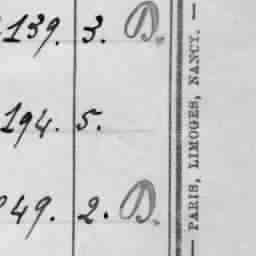 139. 3. D.
194. 5.
49. 2. D.
— PARIS, LIMOGES, NANCY. —